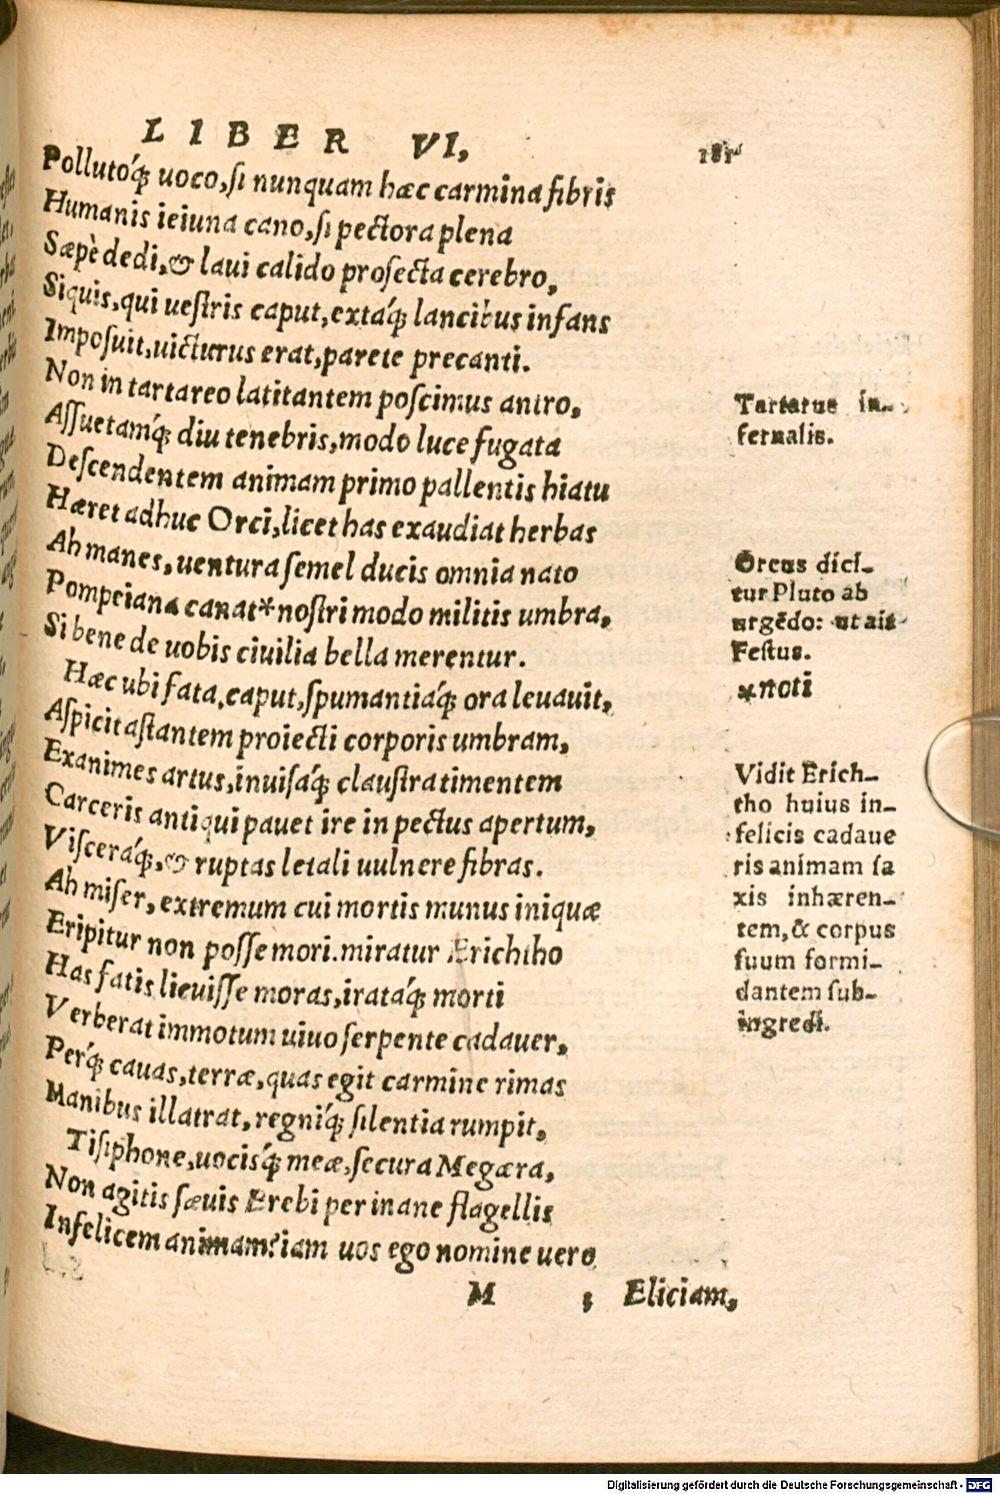 LIBER VI,
Pollutóq́ꝫ uoco, ſi nunquam hæc carmina fibris
Humanis ieiuna cano, ſi pectora plena
Sæpè dedi, & laui calido proſecta cerebro,
Siquis, qui ueſtris caput, extáq́ꝫ lancibus infans
Impoſuit, uicturus erat, parete precanti.
Non in tartareo latitantem poſcimus antro,
Aſſuetamq́ꝫ diu tenebris, modo luce fugata
Deſcendentem animam primo pallentis hiatu
Hæret adhuc Orci, licet has exaudiat herbas
Ah manes, uentura ſemel ducis omnia nato
Pompeiana canat* noſtri modo militis umbra,
Si bene de uobis ciuilia bella merentur.
Hæc ubi fata, caput, ſpumantiáq́ꝫ ora leuauit,
Aſpicit aſtantem proiecti corporis umbram,
Exanimes artus, inuiſáq́ꝫ clauſtra timentem
Carceris antiqui pauet ire in pectus apertum,
Viſceráq́ꝫ, & ruptas letali uulnere fibras.
Ah miſer, extremum cui mortis munus iniquæ
Eripitur non poſſe mori. miratur Erichtho
Has fatis licuiſſe moras, iratáq́ꝫ morti
Verberat immotum uiuo ſerpente cadauer,
Perq́ꝫ cauas, terræ, quas egit carmine rimas
Manibus illatrat, regniq́ꝫ ſilentia rumpit,
Tiſiphone, uociſq́ꝫ meæ, ſecura Megæra,
Non agitis ſæuis Erebi per inane flagellis
Infelicem animam? iam uos ego nomine uero
M ; Eliciam,
Tartarus in-
fernalis.
Orcus dici-
tur Pluto ab
urgēdo: ut ait
Feſtus.
* noti
Vidit Erich-
tho huius in-
felicis cadaue
ris animam ſa
xis inhæren-
tem, & corpus
ſuum formi-
dantem ſub-
ingredi.
Digitalisierung gefördert durch die Deutsche Forschungsgemeinschaft - DFG